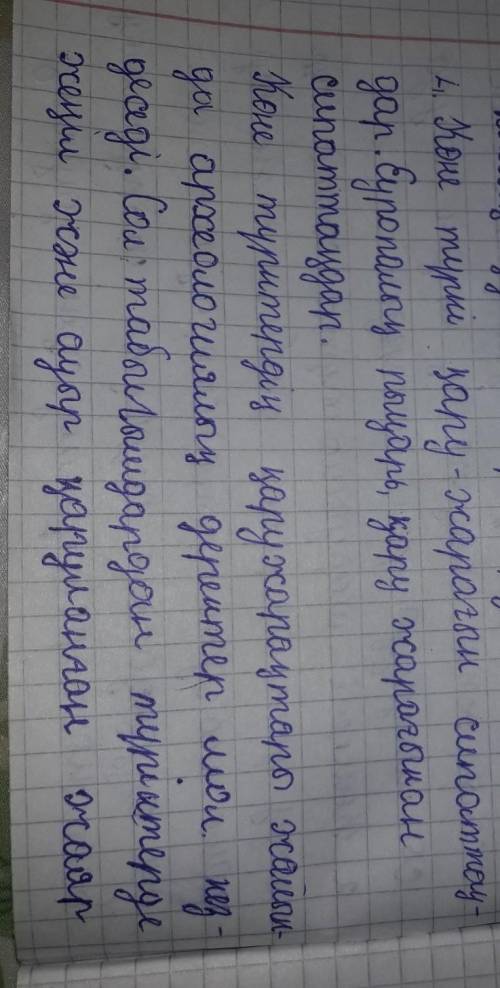 1. Көне түркі қару-жарағын сипаттау-
дар. Еуропалық рыцарь, қару жарағынан
сипаттаудар.
Көне түріктердің қаружарақтары жайын-
да археологиялық деректер мол кез-
деседі. Сол табылғандардан түріктерде
жеңіл және ауыр қаруланған жаяр